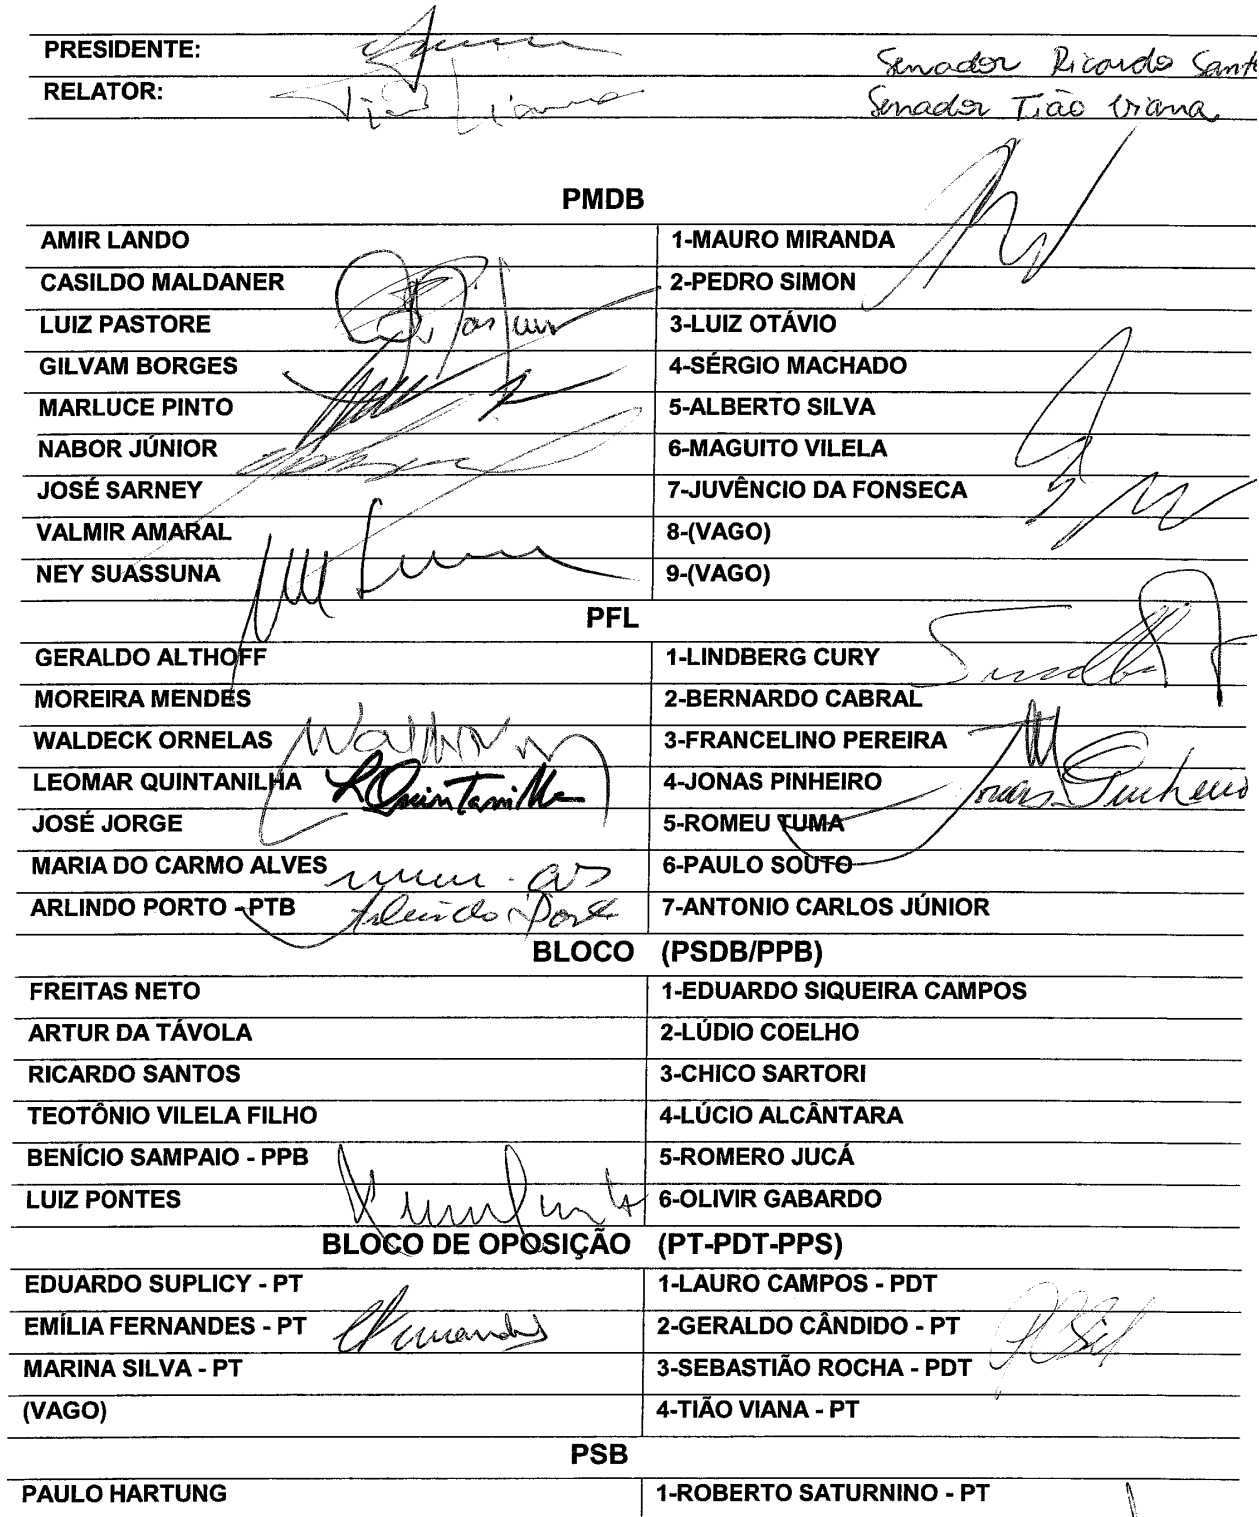 PRESIDENTE: Senador Ricardo
RELATOR: Tião Viana Senador Tião Viana
PMDB
AMIR LANDO 1-MAURO MIRANDA
CASILDO MALDANER 2-PEDRO SIMON
LUIZ PASTORE 3-LUIZ OTÁVIO
GILVAM BORGES 4-SÉRGIO MACHADO
MARLUCE PINTO 5-ALBERTO SILVA
NABOR JÚNIOR 6-MAGUITO VILELA
JOSÉ SARNEY 7-JUVÊNCIO DA FONSECA
VALMIR AMARAL 8-(VAGO)
NEY SUASSUNA 9-(VAGO)
PFL
GERALDO ALTHOFF 1-LINDBERG CURY
MOREIRA MENDES 2-BERNARDO CABRAL
WALDECK ORNELAS 3-FRANCELINO PEREIRA
LEOMAR QUINTANILHA LQuintanilha 4-JONAS PINHEIRO Jonas Pinheiro
JOSÉ JORGE 5-ROMEU TUMA
MARIA DO CARMO ALVES 6-PAULO SOUTO
ARLINDO PORTO - PTB Arlindo Porto 7-ANTONIO CARLOS JÚNIOR
BLOCO (PSDB/PPB)
FREITAS NETO 1-EDUARDO SIQUEIRA CAMPOS
ARTUR DA TÁVOLA 2-LÚDIO COELHO
RICARDO SANTOS 3-CHICO SARTORI
TEOTÔNIO VILELA FILHO 4-LÚCIO ALCÂNTARA
BENÍCIO SAMPAIO - PPB 5-ROMERO JUCÁ
LUIZ PONTES 6-OLIVIR GABARDO
BLOCO DE OPOSIÇÃO (PT-PDT-PPS)
EDUARDO SUPLICY - PT 1-LAURO CAMPOS - PDT
EMÍLIA FERNANDES - PT 2-GERALDO CÂNDIDO - PT
MARINA SILVA - PT 3-SEBASTIÃO ROCHA - PDT
(VAGO) 4-TIÃO VIANA - PT
PSB
PAULO HARTUNG 1-ROBERTO SATURNINO - PT